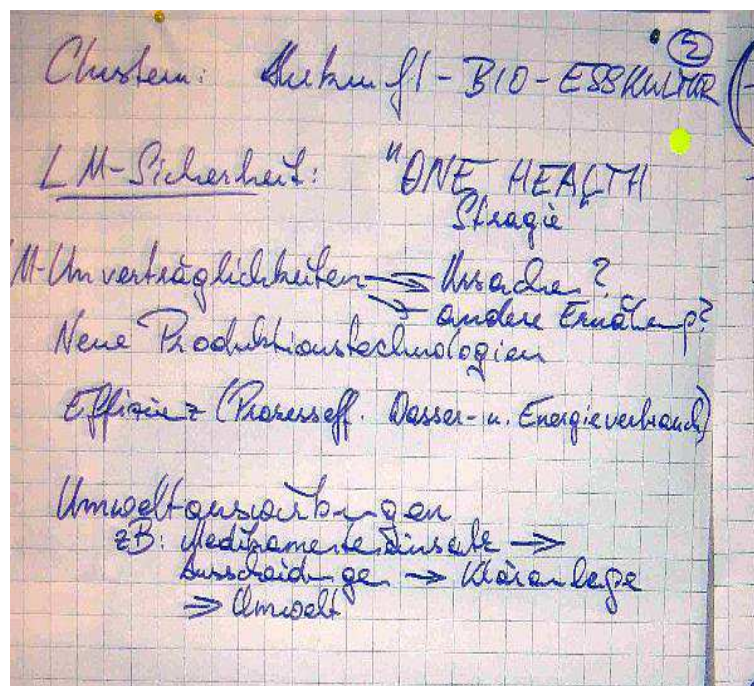 ②
Clustern: Herkunft - BIO - ESSKULTUR
LM-Sicherheit: "ONE HEALTH
Stragie"
M-Unverträglichkeiten → Ursachen?
→ andere Ernährung?
Neue Produktionstechnologien
Effizienz (Prozesseff. Wasser- u. Energieverbrauch)
Umweltauswirkungen
zB: Medikamenteneinsatz →
Ausscheidungen → Kläranlage
⇒ Umwelt